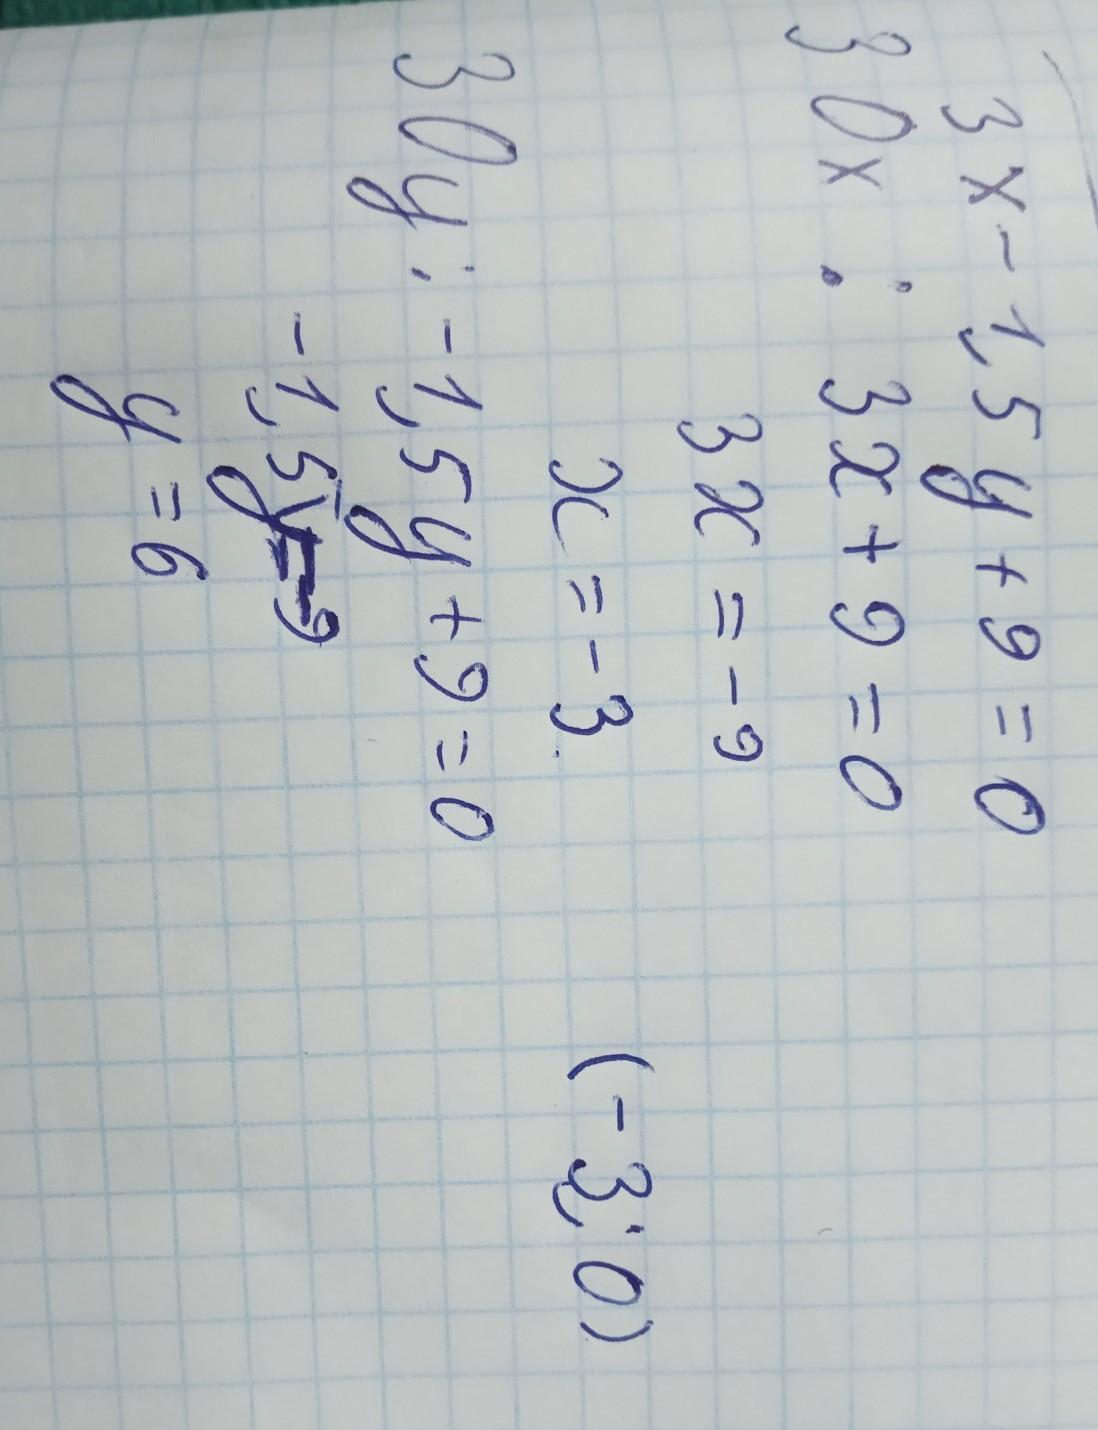 3x-1,5y+9=0
З Ox: 3x+9=0
3x=-9
x=-3 (-3;0)
З Oy: -1,5y+9=0
-1,5y=-9
y=6